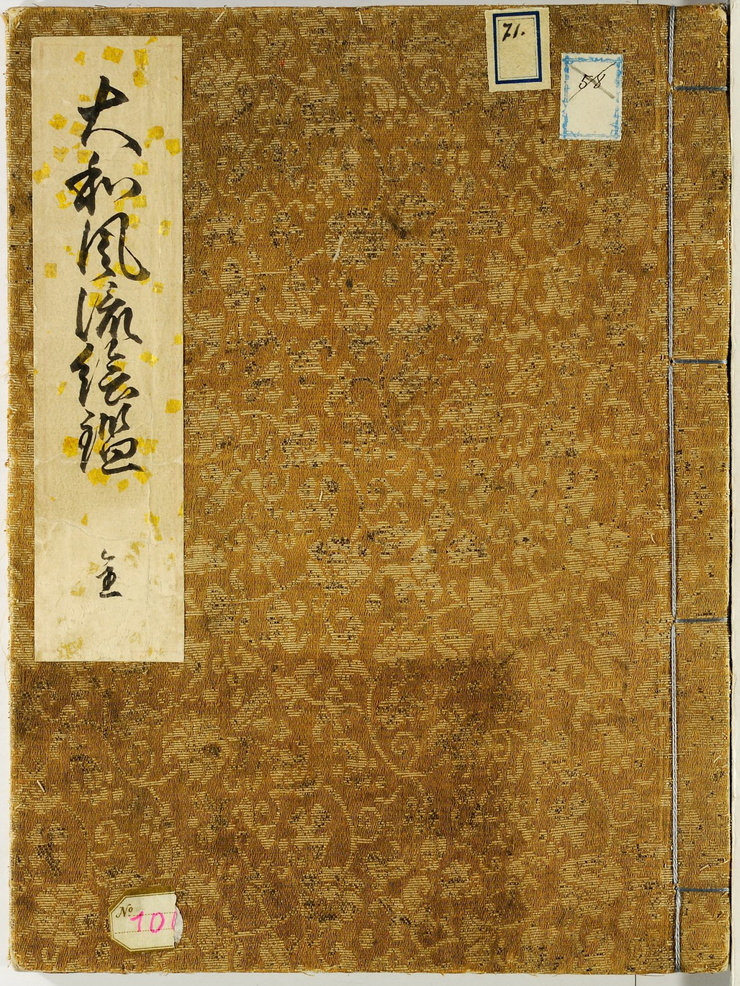 大和風流絵鑑
全
71.
58
No 101